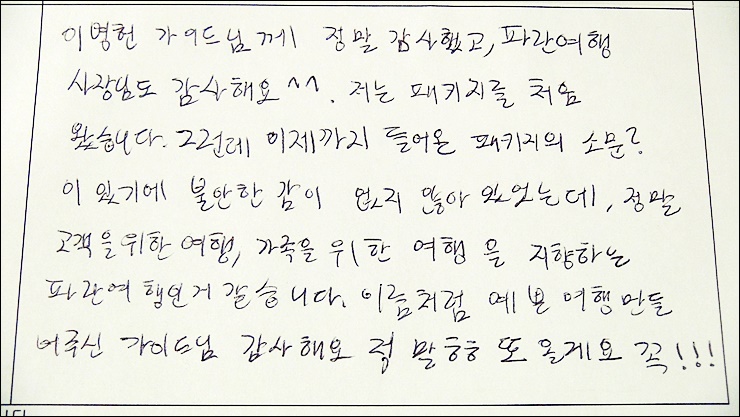 이병헌 가이드님께 정말 감사했고, 파란여행
사장님도 감사해요^^. 저는 패키지를 처음
왔습니다. 그런데 이제까지 들어온 패키지의 소문?
이 있기에 불안한 감이 없지 않아 있었는데, 정말
고객을위한 여행, 가족을 위한 여행 을 지향하는
파란여행인거 같습니다. 이름처럼 예쁜 여행만들
어주신 가이드님 감사해요 정말ㅎㅎ 또 올게요 꼭!!!